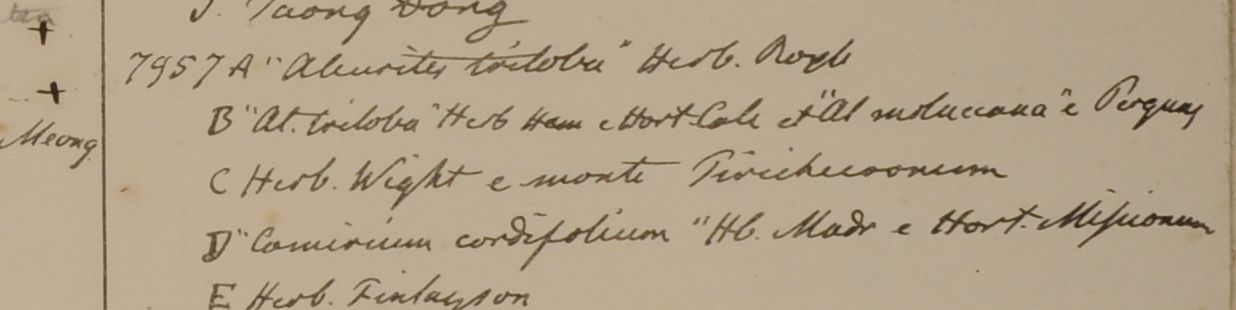 J. Taong Dong
+
7957 A "Aleurites triloba" Herb. Roxb
+
B "Al. triloba" Herb Ham e Hort Calc et "Al moluccana" e
Meong
C Herb. Wight e monte
D "Camirium cordifolium" Hb. Madr e Hort. Missionum
E Herb. Finlayson